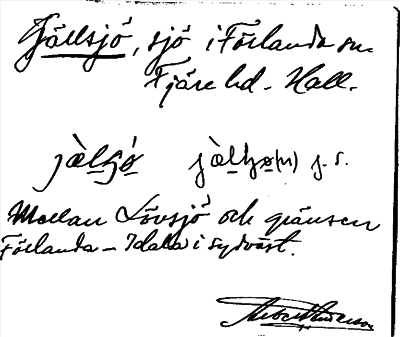 Gällsjö, sjö i Förlanda sn.
Fjäre hd. Hall.
jælʂø jælʂø(n) j. s.
Mellan Lövsjö och gränsen
Förlanda – Idala i sydväst.